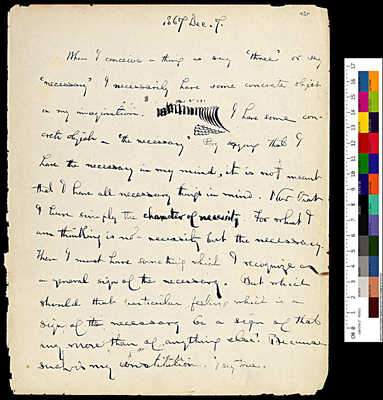 1867 Dec. 7.
When I conceive a thing as say "three" or say
"necessary" I necessarily have some concrete object
in my imagination. I have some con-
crete object — "the necessary" By saying that I
have the necessary in my mind, it is not meant
that I have all necessary things in mind. Nor that
I have simply the character of necessity. For what I
am thinking is not necessity but the necessary.
Then I must have something which I recognize as
a general sign of the necessary. But which
should that particular feeling which is a
sign of the necessary be a sign of that
any more than of anything else? Because
such is my constitution.